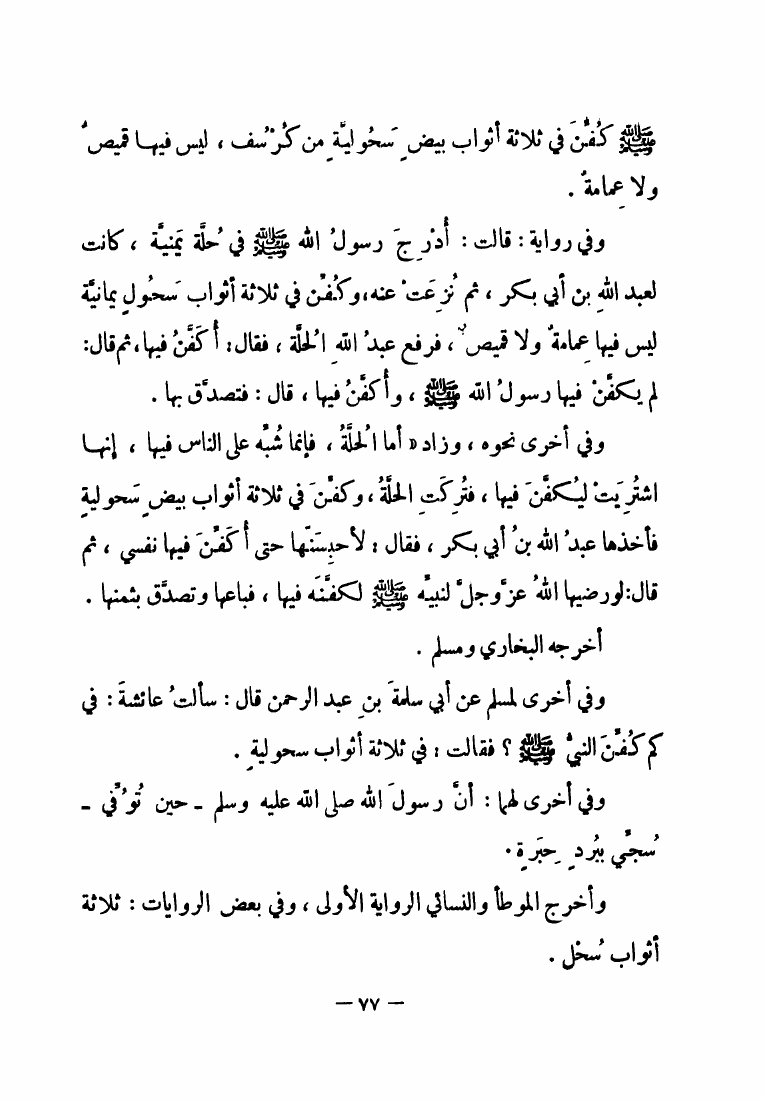 ﷺ كُفِّنَ في ثلاثة أثواب بيضٍ سَحُوليَّةٍ من كُرْسُف ، ليس فيها قميصٌ
ولا عِمامةٌ .
وفي رواية : قالت : أُدْرِجَ رسولُ الله ﷺ في حُلَّة يَمنيَّة ، كانت
لعبد اللهِ بن أبي بكر ، ثم نُزِعَتْ عنه،وكُفِّن في ثلاثة أثواب سَحُولٍ يمانيَّة
ليس فيها عِمامةٌ ولا قميصٌ ، فرفع عبدُ اللهِ الحُلَّة ، فقال: أُكَفَّنُ فيها،ثم قال:
لم يكفَّنْ فيها رسولُ الله ﷺ ، وأُكفَّنُ فيها ، قال : فتصدَّق بها .
وفي أخرى نحوه ، وزاد « أما الحُلَّةُ ، فإنما شُبِّه على الناس فيها ، إنها
اشتُرِيَتْ ليُكفَّنَ فيها ، فتُرِكَتِ الحلَّةُ ، وكفِّنَ في ثلاثة أثواب بيضٍ سَحوليةٍ
فأخذها عبدُ الله بنُ أبي بكر ، فقال : لأحبِسَنّها حتى أُكَفِّنَ فيها نفسي ، ثم
قال:لو رضيها اللهُ عزَّوجلَّ لنبيِّه ﷺ لكفَّنَه فيها ، فباعها وتصدَّق بثمنها .
أخرجه البخاري ومسلم .
وفي أخرى لمسلم عن أبي سلمةَ بنِ عبد الرحمن قال : سألتُ عائشةَ : في
كم كُفِّنَ النبيُّ ﷺ ؟ فقالت : في ثلاثة أثواب سحوليةٍ .
وفي أخرى لهما : أنَّ رسولَ الله صلى الله عليه وسلم - حين تُوُفِّي -
سُجِّي ببُردٍ حِبَرَةٍ .
وأخرج الموطأ والنسائي الرواية الأولى ، وفي بعض الروايات : ثلاثة
أثواب سُحْل .
— ٧٧ —